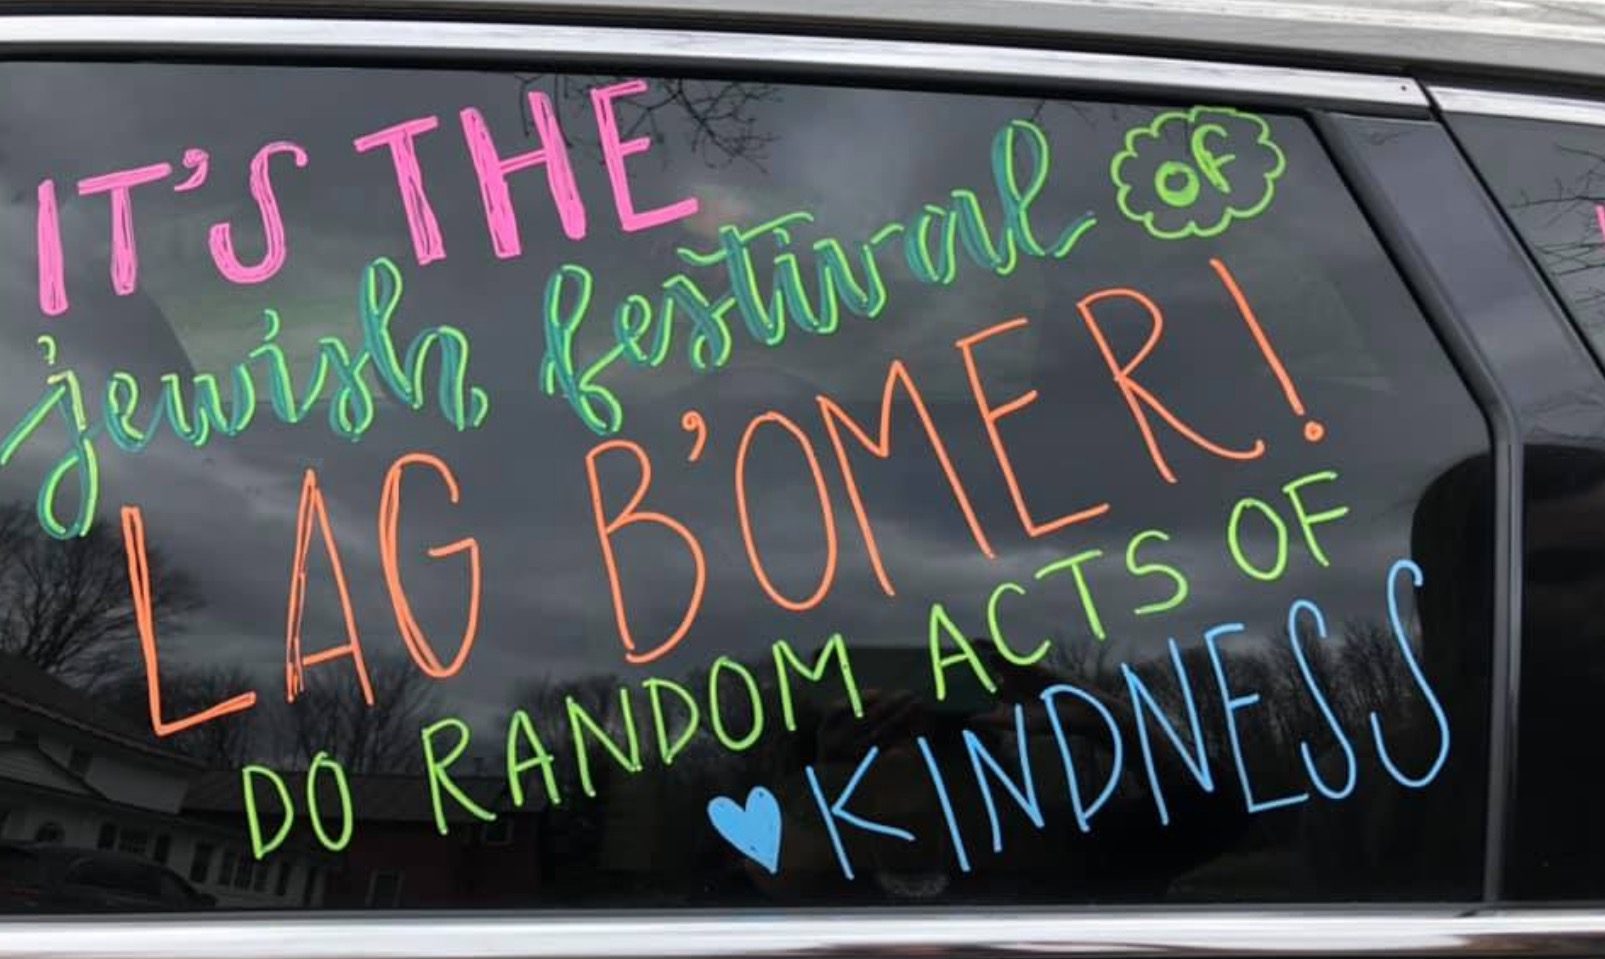 IT'S THE
jewish festival OF
LAG B'OMER!
DO RANDOM ACTS OF
KINDNESS